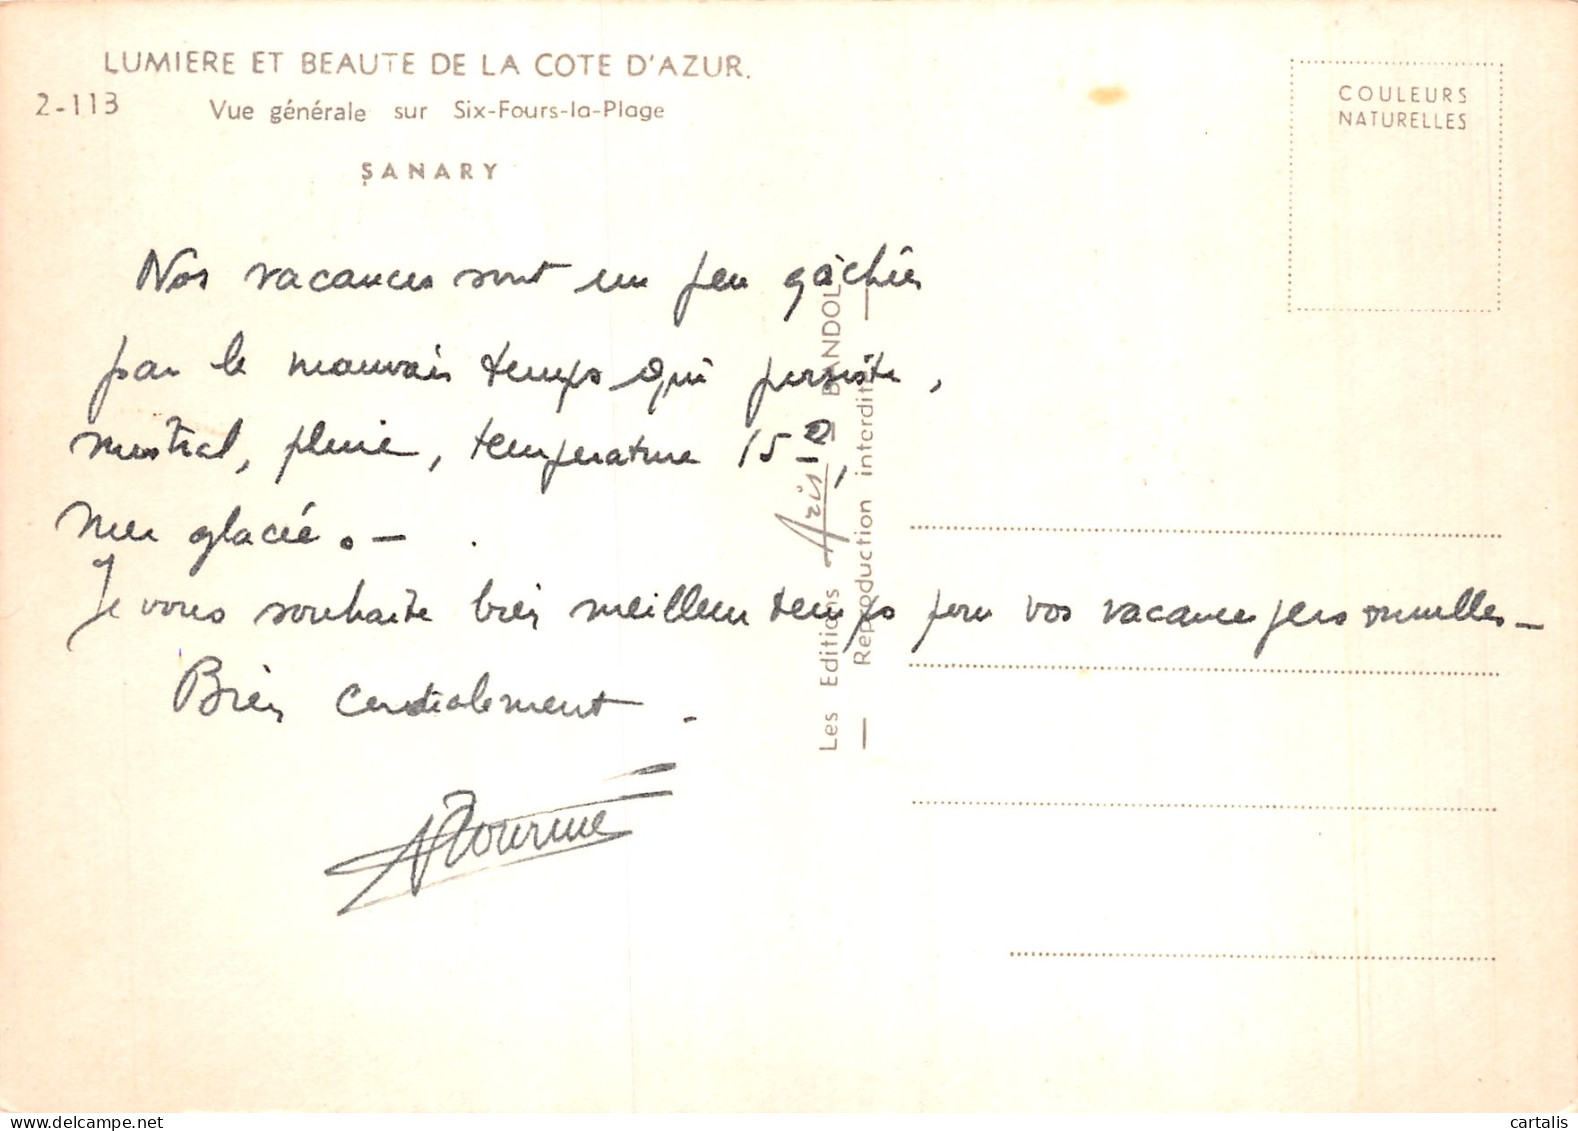 LUMIERE ET BEAUTE DE LA COTE D'AZUR.
2-113 Vue générale sur Six-Fours-la-Plage
SANARY
COULEURS
NATURELLES
Nos vacances sont un peu gâchées
par le mauvais temps qui persiste,
mistral, pluie, température 15°,
mer glacée. -
Je vous souhaite bien meilleur temps pour vos vacances personnelles -
Bien cordialement.
Les Editions Aris BANDOL
Reproduction interdite
cartalis